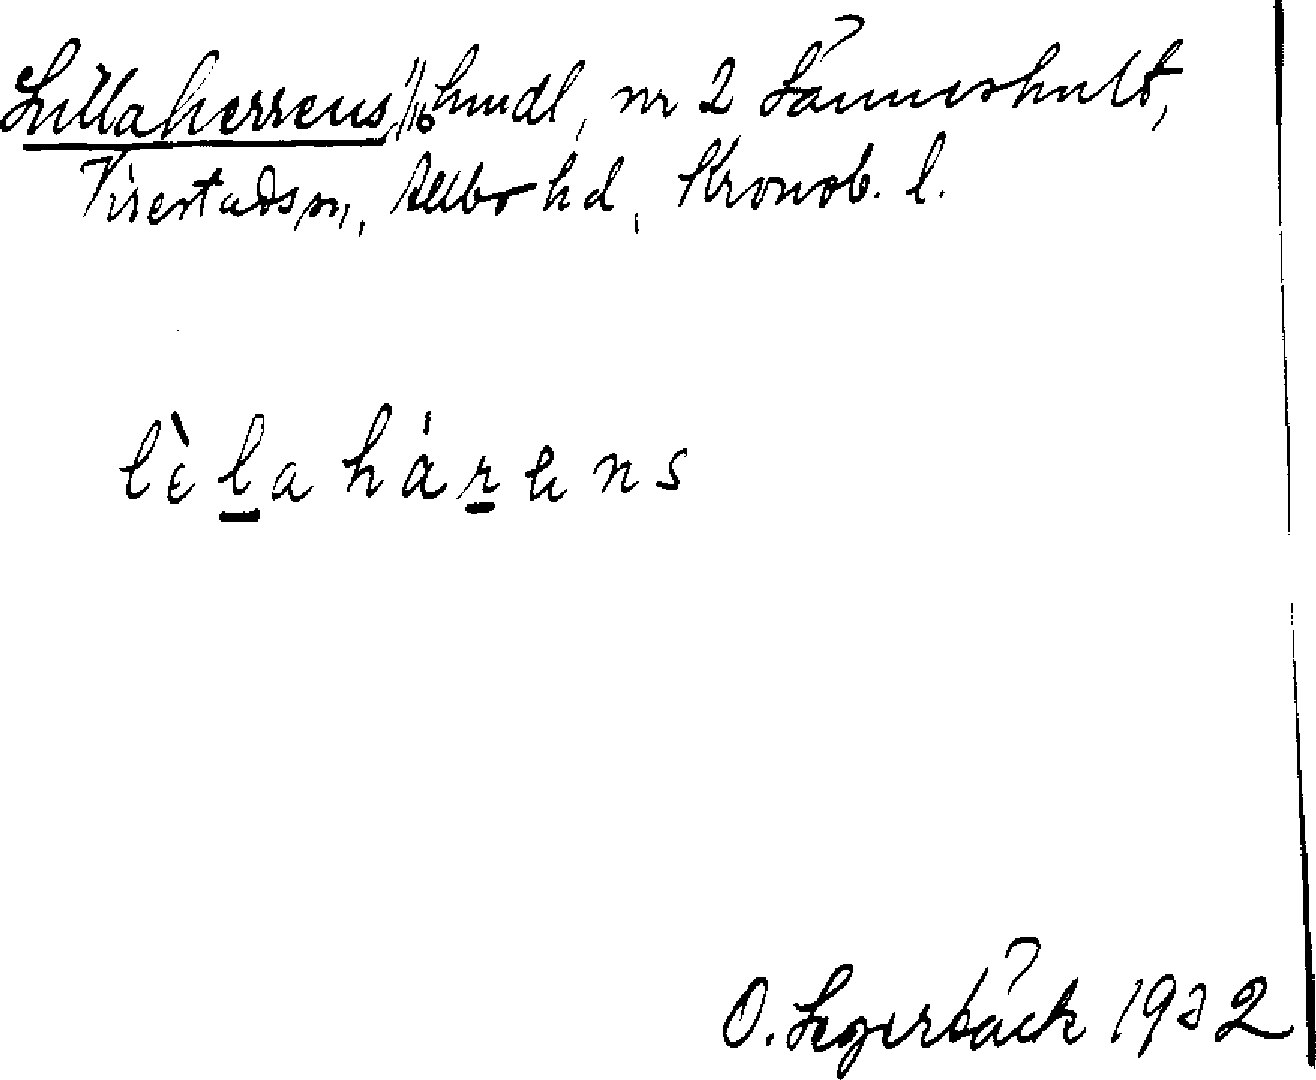 Lillaherrens, 1/16 hmdl, nr 2 Sånneshult,
Virestads sn, Allbo hd, Kronob. l.
lèlahárens
O. Segerbäck 1932